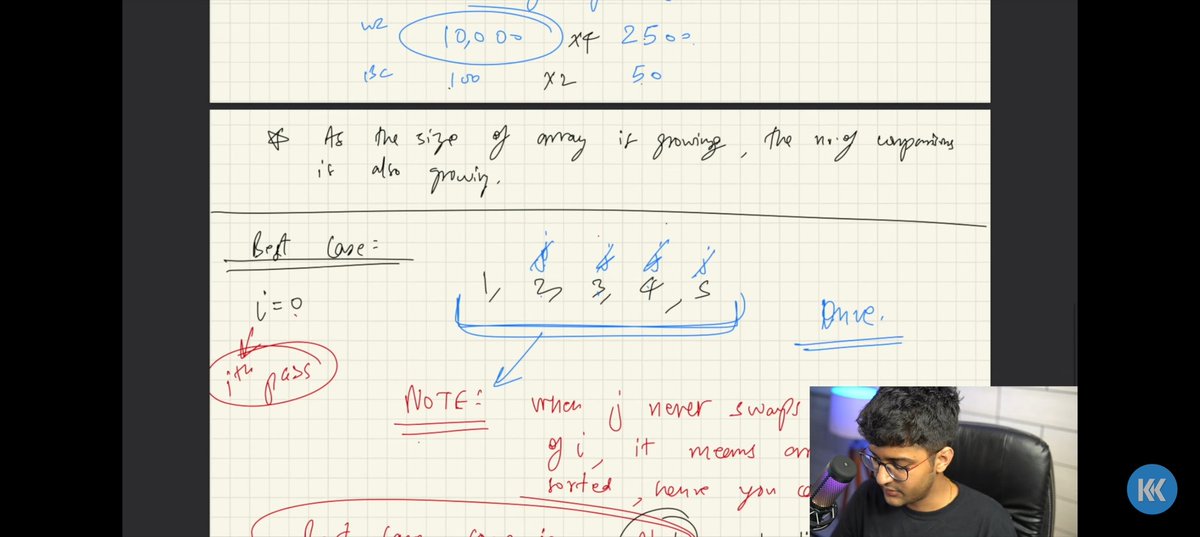 WC 10,000 x4 2500
BC 100 x2 50
* As the size of array is growing, the no. of comparisons
is also growing.
Best Case:
j j j j
1, 2, 3, 4, 5
i = 0
Done.
ith pass
NOTE: when j never swaps
of i, it means
sorted, hence you
KK